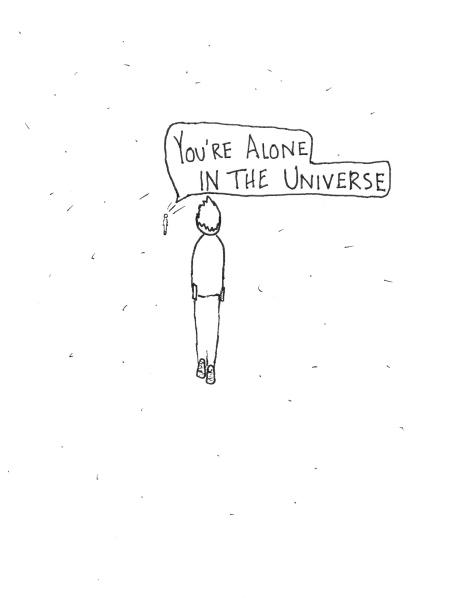 YOU'RE ALONE
IN THE UNIVERSE